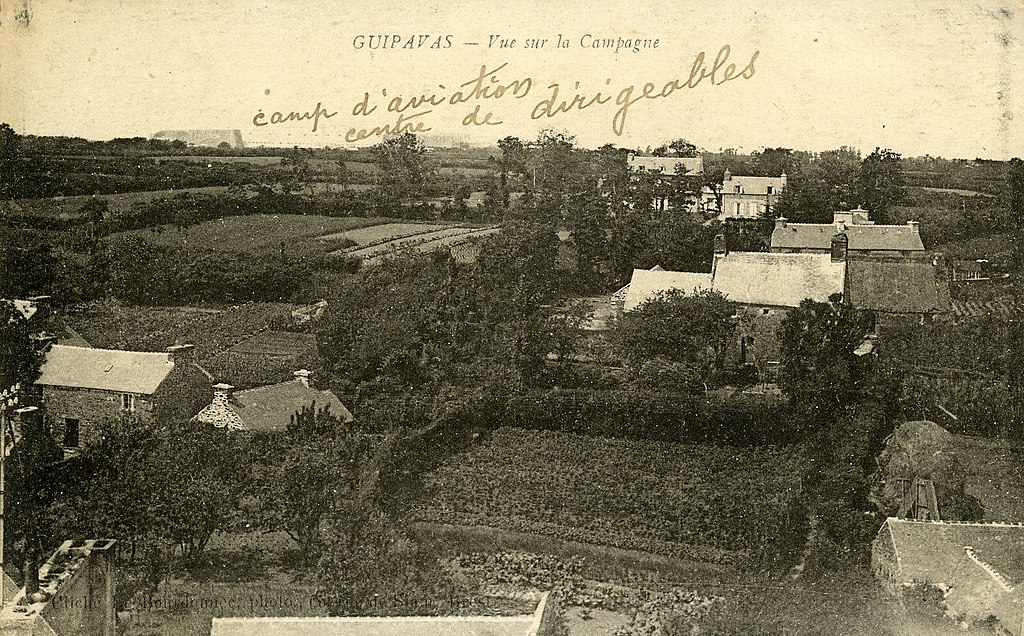 GUIPAVAS — Vue sur la Campagne
camp d'aviation
centre de dirigeables
Cliché photo.